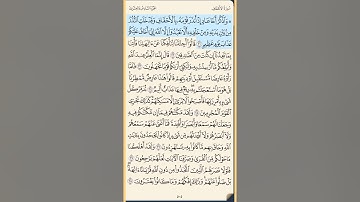 سُورَةُ الأَحْقَافِ
الجُزْءُ السَّادِسُ وَالعِشْرُونَ
۞ وَاذْكُرْ أَخَا عَادٍ إِذْ أَنذَرَ قَوْمَهُ بِالْأَحْقَافِ وَقَدْ خَلَتِ النُّذُرُ
مِن بَيْنِ يَدَيْهِ وَمِنْ خَلْفِهِ أَلَّا تَعْبُدُوا إِلَّا اللَّهَ إِنِّي أَخَافُ عَلَيْكُمْ
عَذَابَ يَوْمٍ عَظِيمٍ ٢١ قَالُوا أَجِئْتَنَا لِتَأْفِكَنَا عَنْ آلِهَتِنَا فَأْتِنَا
بِمَا تَعِدُنَا إِن كُنتَ مِنَ الصَّادِقِينَ ٢٢ قَالَ إِنَّمَا الْعِلْمُ عِندَ اللَّهِ
وَأُبَلِّغُكُم مَّا أُرْسِلْتُ بِهِ وَلَٰكِنِّي أَرَاكُمْ قَوْمًا تَجْهَلُونَ ٢٣ فَلَمَّا
رَأَوْهُ عَارِضًا مُّسْتَقْبِلَ أَوْدِيَتِهِمْ قَالُوا هَٰذَا عَارِضٌ مُّمْطِرُنَا
بَلْ هُوَ مَا اسْتَعْجَلْتُم بِهِ رِيحٌ فِيهَا عَذَابٌ أَلِيمٌ ٢٤ تُدَمِّرُ كُلَّ
شَيْءٍ بِأَمْرِ رَبِّهَا فَأَصْبَحُوا لَا يُرَىٰ إِلَّا مَسَاكِنُهُمْ كَذَٰلِكَ نَجْزِي
الْقَوْمَ الْمُجْرِمِينَ ٢٥ وَلَقَدْ مَكَّنَّاهُمْ فِيمَا إِن مَّكَّنَّاكُمْ فِيهِ
وَجَعَلْنَا لَهُمْ سَمْعًا وَأَبْصَارًا وَأَفْئِدَةً فَمَا أَغْنَىٰ عَنْهُمْ سَمْعُهُمْ
وَلَا أَبْصَارُهُمْ وَلَا أَفْئِدَتُهُم مِّن شَيْءٍ إِذْ كَانُوا يَجْحَدُونَ بِآيَاتِ
اللَّهِ وَحَاقَ بِهِم مَّا كَانُوا بِهِ يَسْتَهْزِئُونَ ٢٦ وَلَقَدْ أَهْلَكْنَا
مَا حَوْلَكُم مِّنَ الْقُرَىٰ وَصَرَّفْنَا الْآيَاتِ لَعَلَّهُمْ يَرْجِعُونَ ٢٧
فَلَوْلَا نَصَرَهُمُ الَّذِينَ اتَّخَذُوا مِن دُونِ اللَّهِ قُرْبَانًا آلِهَةً
بَلْ ضَلُّوا عَنْهُمْ وَذَٰلِكَ إِفْكُهُمْ وَمَا كَانُوا يَفْتَرُونَ ٢٨